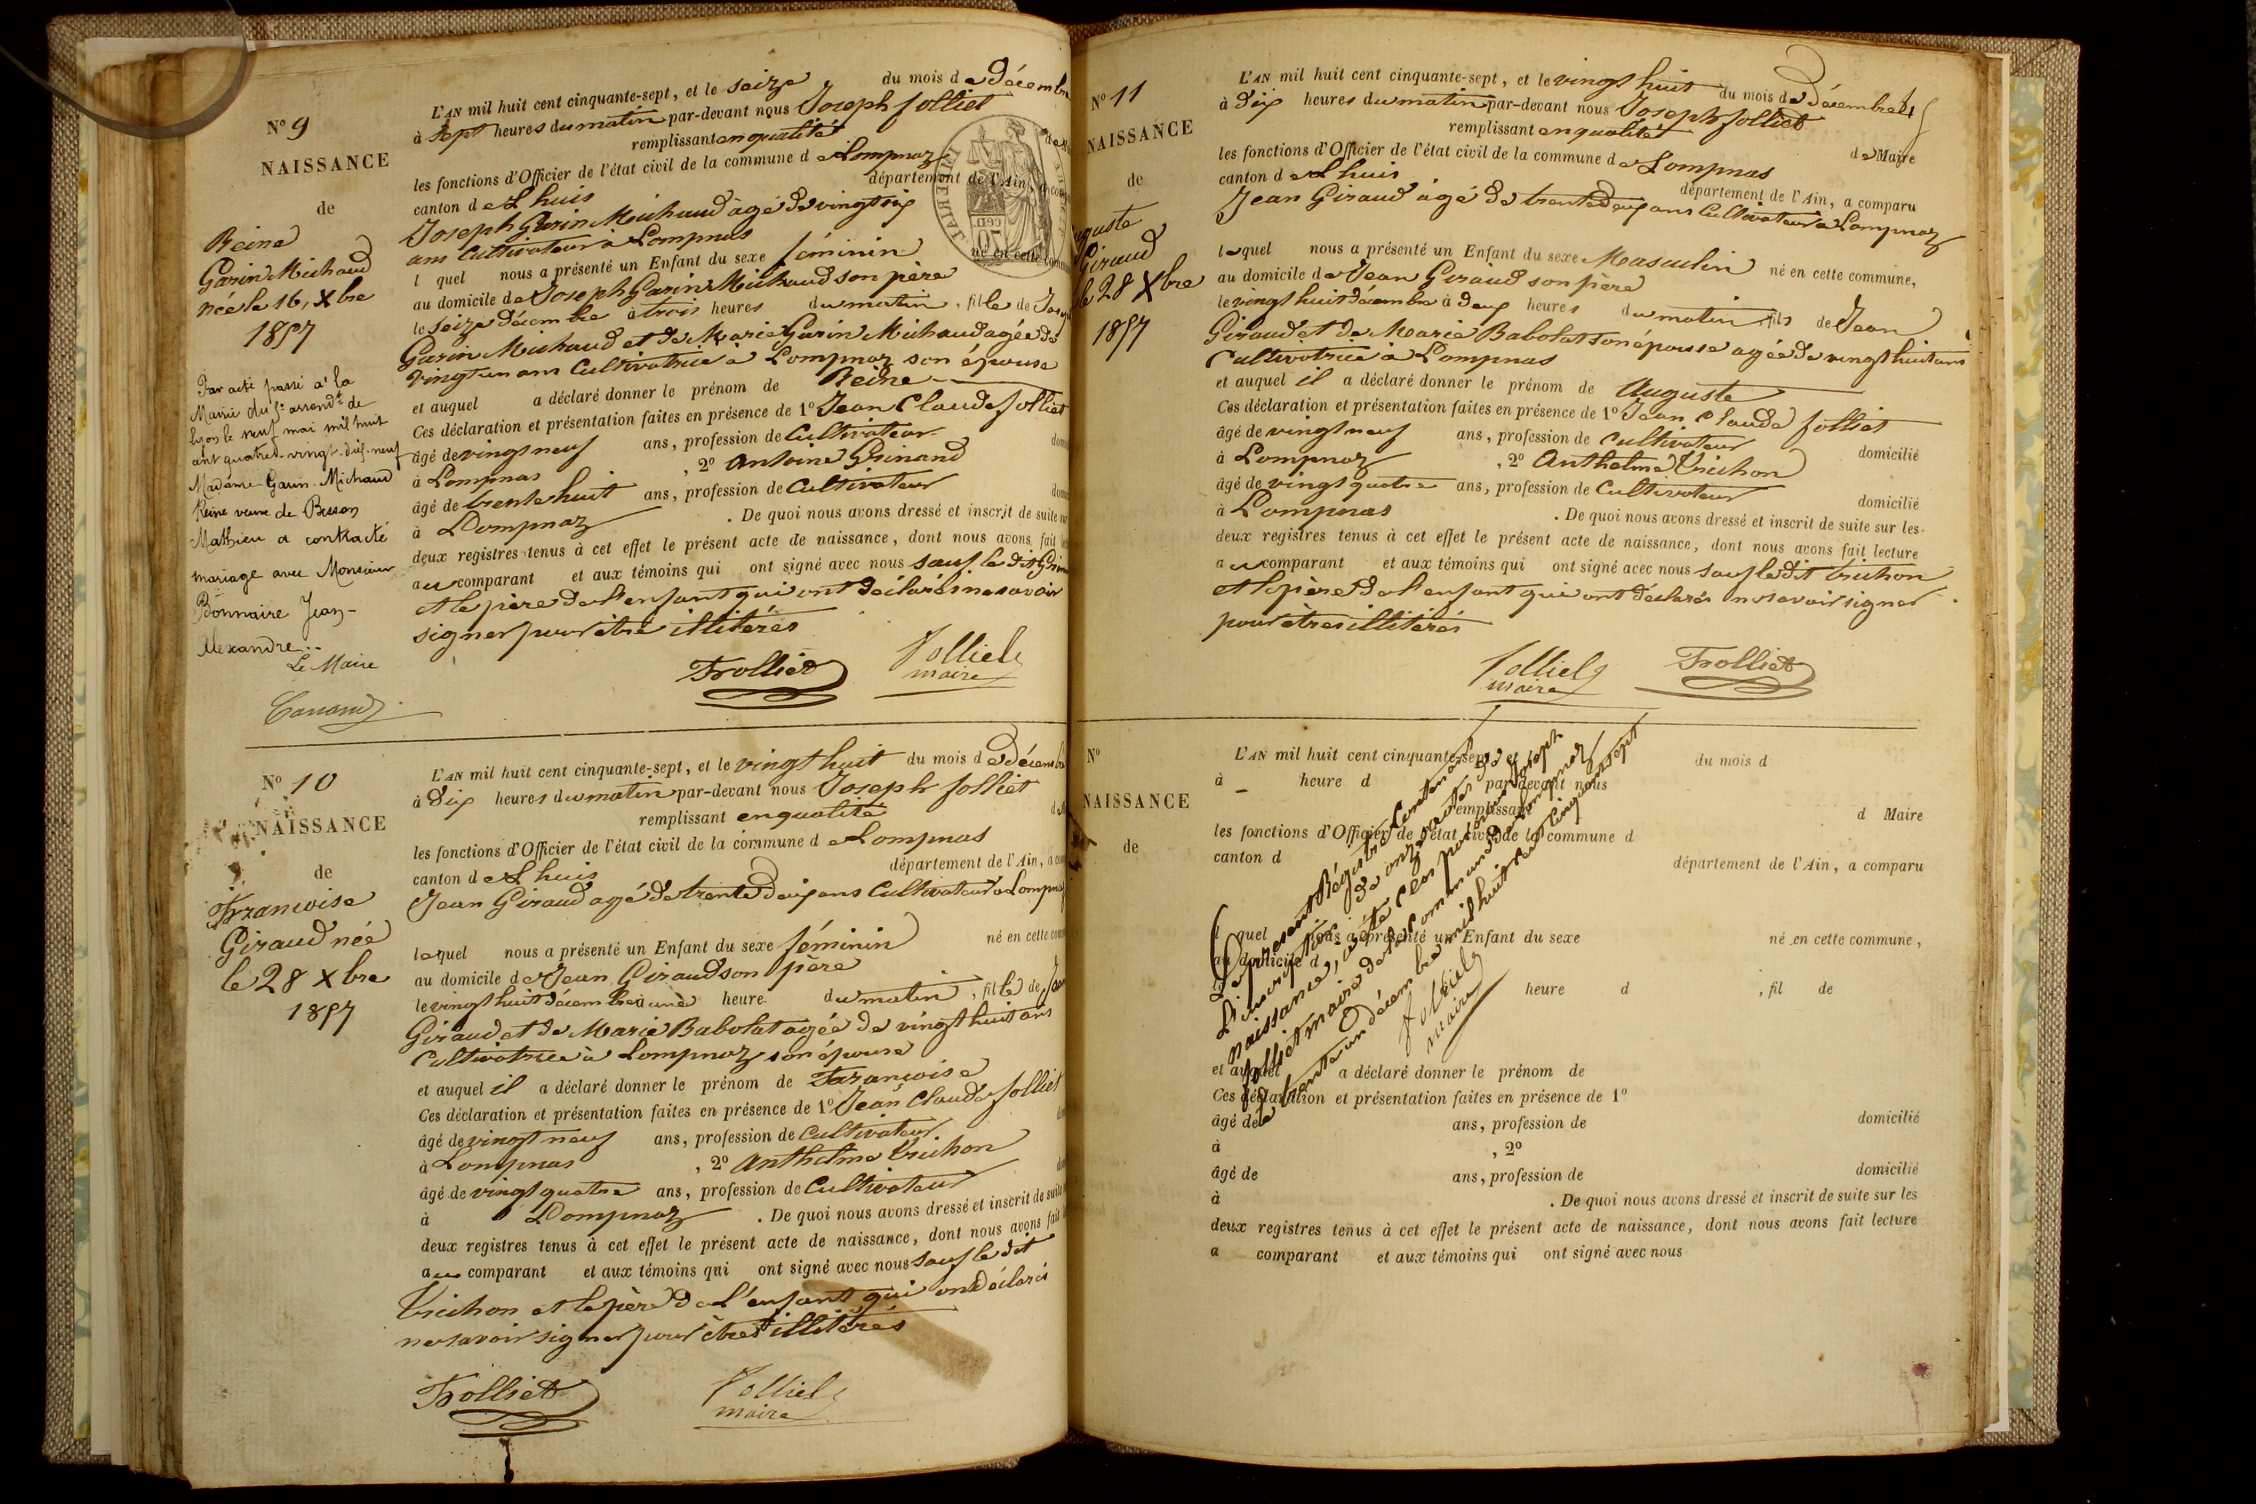 N° 9
NAISSANCE
de
Reine
Garin Michaud
née le 16, Xbre
1857
Par acte passé à la
Mairie du arrondt de
Lyon le neuf mai mil huit
cent quatre-vingt-dix-neuf
Madame Garin-Michaud
Reine veuve de Besson
Mathieu a contracté
mariage avec Monsieur
Bonnaire Jean-
Alexandre..
Le Maire
L'AN mil huit cent cinquante-sept, et le seize du mois de décembre
à sept heures du matin par-devant nous Joseph folliet
remplissant en qualité
les fonctions d'Officier de l'état civil de la commune de Lompnaz
canton de Lhuis département de l'Ain, a
Joseph Garin Michaud âgé de vingt six
ans Cultivateur à Lompnas
l quel nous a présenté un Enfant du sexe féminin né en cette
au domicile de Joseph Garin Michaud son père
le seize décembre à trois heures du matin, fille de
Garin Michaud et de Marie Garin Michaud agée de
vingt un ans Cultivatrice à Lompnaz son épouse
et auquel a déclaré donner le prénom de Reine
Ces déclaration et présentation faites en présence de 1° Jean Claude folliet
âgé de vingt neuf ans, profession de Cultivateur
à Lompnas, 2° Antoine Guinand
âgé de trente huit ans, profession de Cultivateur
à Lompnaz. De quoi nous avons dressé et inscrit de suite
deux registres tenus à cet effet le présent acte de naissance, dont nous avons fait
au comparant et aux témoins qui ont signé avec nous sauf le dit
et le père de l'enfant qui ont déclaré ne savoir
signer pour être illitérés
Trolliet folliet
maire
N° 10
NAISSANCE
de
Francoise
Giraud née
le 28 Xbre
1857
L'AN mil huit cent cinquante-sept, et le vingt huit du mois de décembre
à dix heures du matin par-devant nous Joseph folliet
remplissant en qualité
les fonctions d'Officier de l'état civil de la commune de Lompnas
canton de Lhuis département de l'Ain, a
Jean Giraud agé de trente deux ans Cultivateur à Lompnaz
lequel nous a présenté un Enfant du sexe féminin né en cette
au domicile de Jean Giraud son père
le vingt huit décembre à une heure du matin, fille de Jean
Giraud et de Marie Babolat agée de vingt huit ans
Cultivatrice à Lompnaz son épouse
et auquel il a déclaré donner le prénom de Francoise
Ces déclaration et présentation faites en présence de 1° Jean Claude folliet
âgé de vingt neuf ans, profession de Cultivateur
à Lompnas, 2° Anthelme Trichon
âgé de vingt quatre ans, profession de Cultivateur
à Lompnaz. De quoi nous avons dressé et inscrit de suite
deux registres tenus à cet effet le présent acte de naissance, dont nous avons fait
au comparant et aux témoins qui ont signé avec nous sauf le dit
Trichon et le père de l'enfant qui ont déclaré
ne savoir signer pour être illitérés
Trolliet folliet
maire
N° 11
NAISSANCE
de
Auguste
Giraud
le 28 Xbre
1857
L'AN mil huit cent cinquante-sept, et le vingt huit du mois de décembre
à dix heures du matin par-devant nous Joseph folliet
remplissant en qualité de Maire
les fonctions d'Officier de l'état civil de la commune de Lompnas
canton de Lhuis département de l'Ain, a comparu
Jean Giraud âgé de trente deux ans Cultivateur à Lompnaz
lequel nous a présenté un Enfant du sexe Masculin né en cette commune,
au domicile de Jean Giraud son père
le vingt huit décembre à deux heures du matin, fils de Jean
Giraud et de Marie Babolat son épouse agée de vingt huit ans
Cultivatrice à Lompnas
et auquel il a déclaré donner le prénom de Auguste
Ces déclaration et présentation faites en présence de 1° Jean Claude folliet
âgé de vingt neuf ans, profession de Cultivateur domicilié
à Lompnaz, 2° Anthelme Trichon
âgé de vingt quatre ans, profession de Cultivateur domicilié
à Lompnas. De quoi nous avons dressé et inscrit de suite sur les
deux registres tenus à cet effet le présent acte de naissance, dont nous avons fait lecture
au comparant et aux témoins qui ont signé avec nous sauf le dit trichon
et le père de l'enfant qui ont déclaré ne savoir signer
pour être illitérés
folliet Trolliet
maire
N°
NAISSANCE
de
L'AN mil huit cent cinquante-sept, et le du mois d
à heure d par-devant nous
remplissant d Maire
les fonctions d'Officier de l'état civil de la commune d
canton d département de l'Ain, a comparu
l quel nous a présenté un Enfant du sexe né en cette commune,
au domicile d
heure d, fil de
et auquel a déclaré donner le prénom de
Ces déclaration et présentation faites en présence de 1°
âgé de ans, profession de domicilié
à, 2°
âgé de ans, profession de domicilié
à. De quoi nous avons dressé et inscrit de suite sur les
deux registres tenus à cet effet le présent acte de naissance, dont nous avons fait lecture
a comparant et aux témoins qui ont signé avec nous
Le présent Régistre contenant
l'inscription de onze actes de
naissance, a été clos par nous Joseph
folliet maire de la commune de Lompnaz
le trente un décembre mil huit cent cinquante sept
folliet
maire